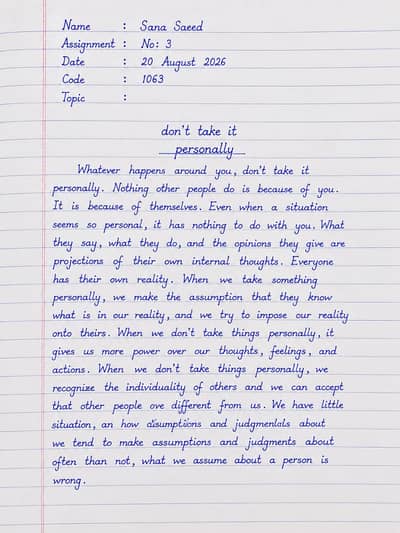 Name : Sana Saeed
Assignment : No: 3
Date : 20 August 2026
Code : 1063
Topic :
don't take it
personally
Whatever happens around you, don't take it
personally. Nothing other people do is because of you.
It is because of themselves. Even when a situation
seems so personal, it has nothing to do with you. What
they say, what they do, and the opinions they give are
projections of their own internal thoughts. Everyone
has their own reality. When we take something
personally, we make the assumption that they know
what is in our reality, and we try to impose our reality
onto theirs. When we don't take things personally, it
gives us more power over our thoughts, feelings, and
actions. When we don't take things personally, we
recognize the individuality of others and we can accept
that other people ove different from us. We have little
situation, an how and about
we tend to make assumptions and judgments about
often than not, what we assume about a person is
wrong.